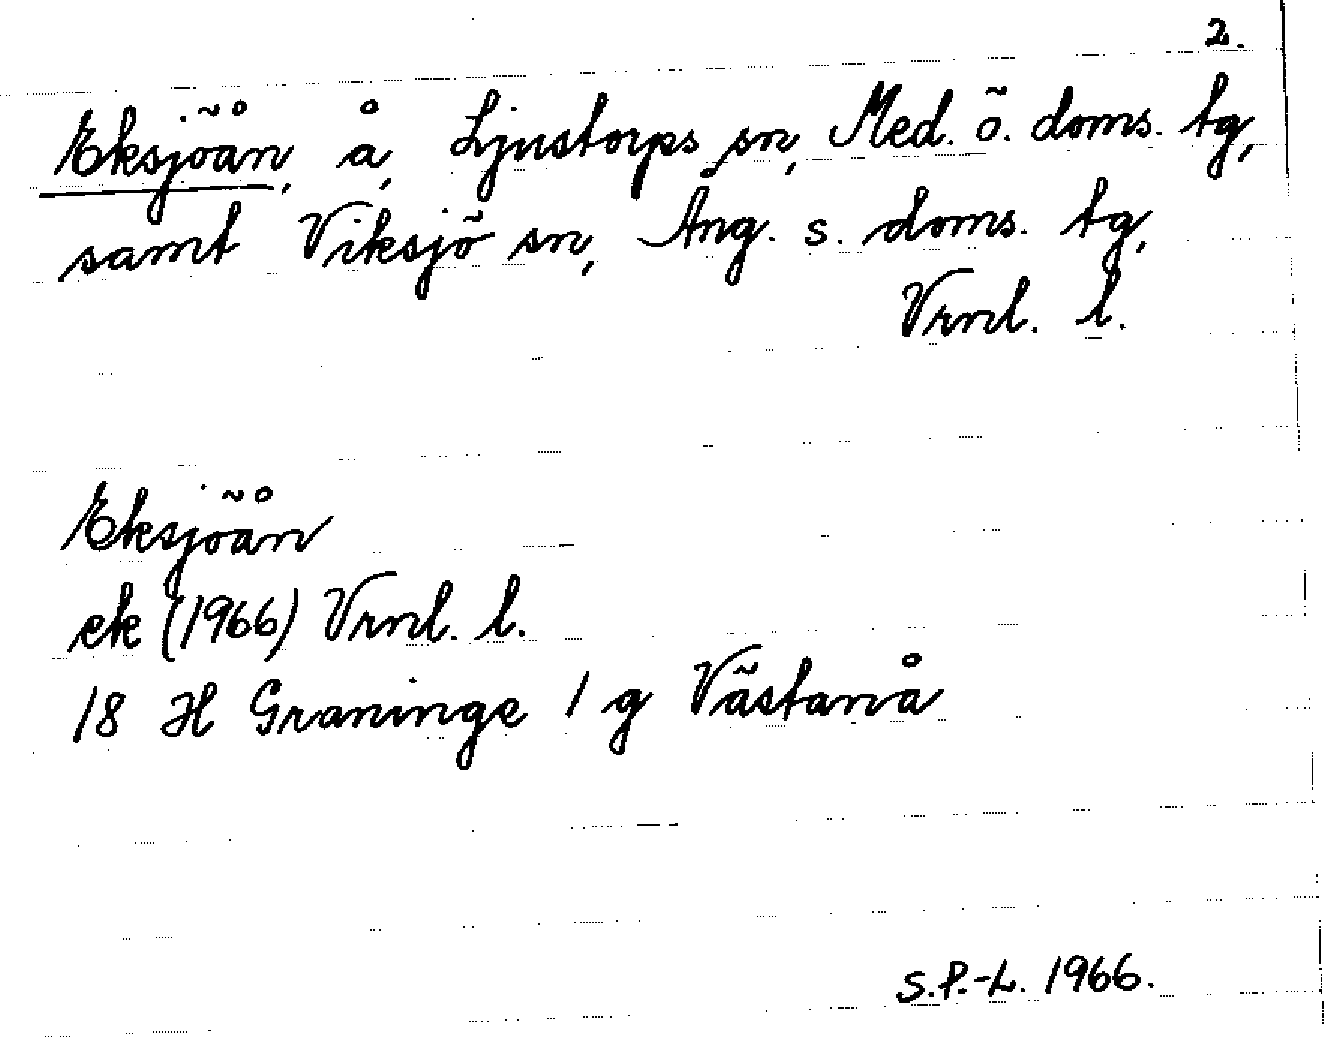 2.
Eksjöån, å, Ljustorps sn, Med. ö. doms. tg,
samt Viksjö sn, Ång. s. doms. tg,
Vrnl. l.
Eksjöån
ek (1966) Vrnl. l.
18 H Graninge 1 g Västanå
S.P.-L. 1966.